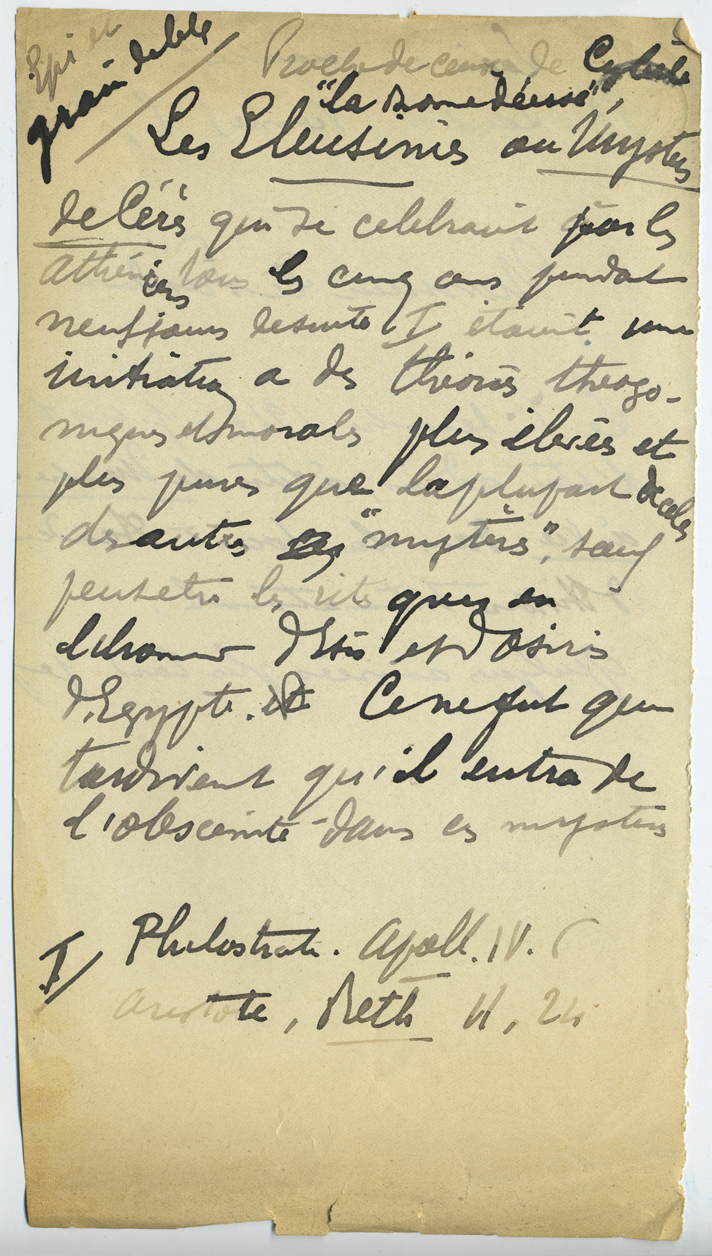 Epi et
grain de blé
Proche de ceux de Cybèle
"la bonne déesse",
Les Eleusinies ou Mystères
de Cérès qui se celebraient par les
Athéniens tous les cinq ans pendant
neuf jours de suite I étaient une
initiation a des théories théogo-
niques et morales plus élevées et
plus pures que la plupart de celles
des autres "mystères", sauf
peut etre les rites en
l'honneur d'Isis et d'Osiris
d'Egypte. Ce ne fut que
tardivement qu'il entra de
l'obscenité dans ces mystères
I/ Philostrate. Apoll. IV. 6
Aristote, Reth II, 24